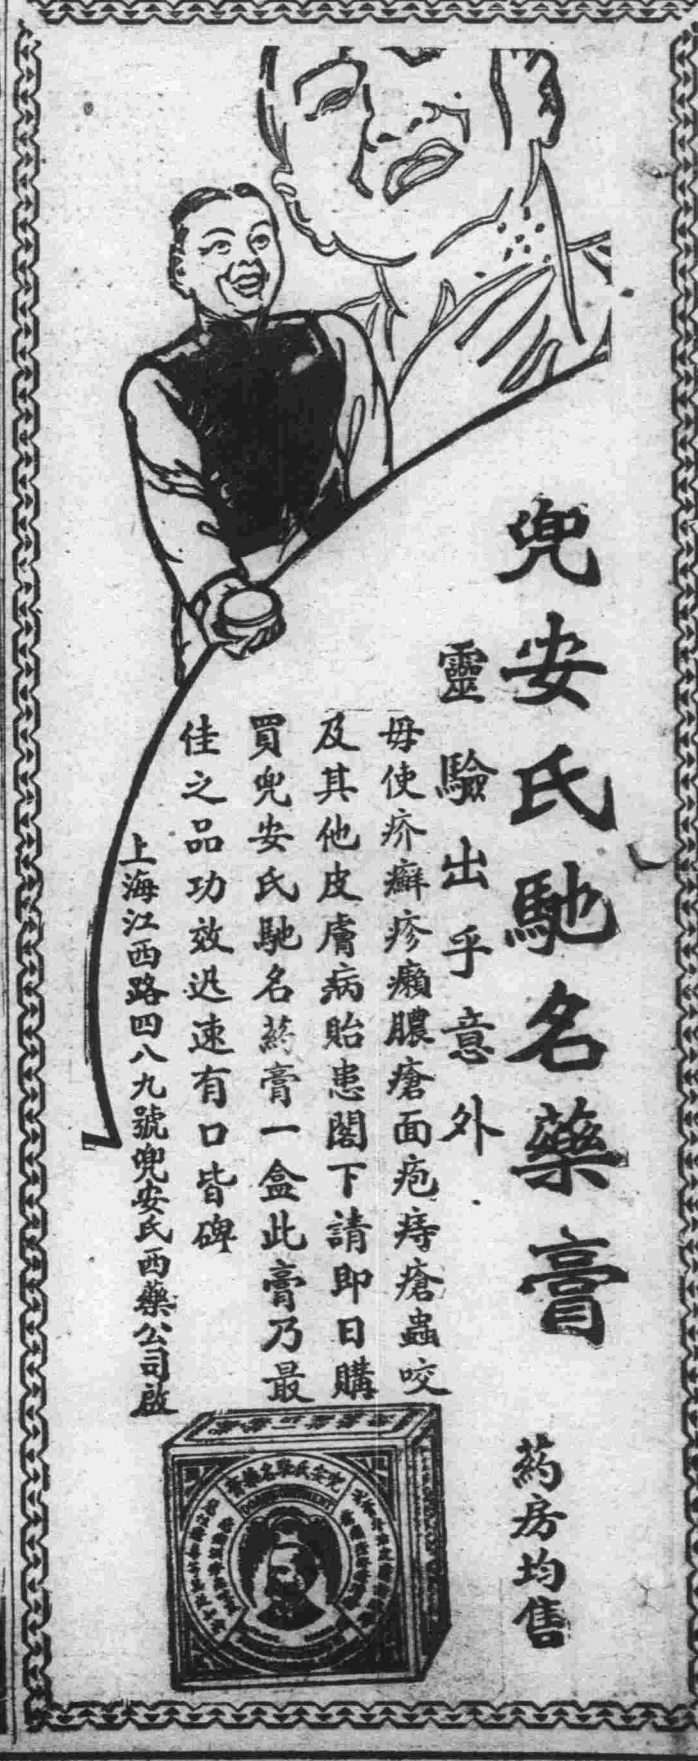 兜安氏馳名藥膏
靈驗出乎意外
毋使疥癬疹癩膿瘡面疱痔瘡蟲咬
及其他皮膚病貽患閣下請即日購
買兜安氏馳名葯膏一盒此膏乃最
佳之品功效迅速有口皆碑
上海江西路四八九號兜安氏西藥公司啟
葯房均售